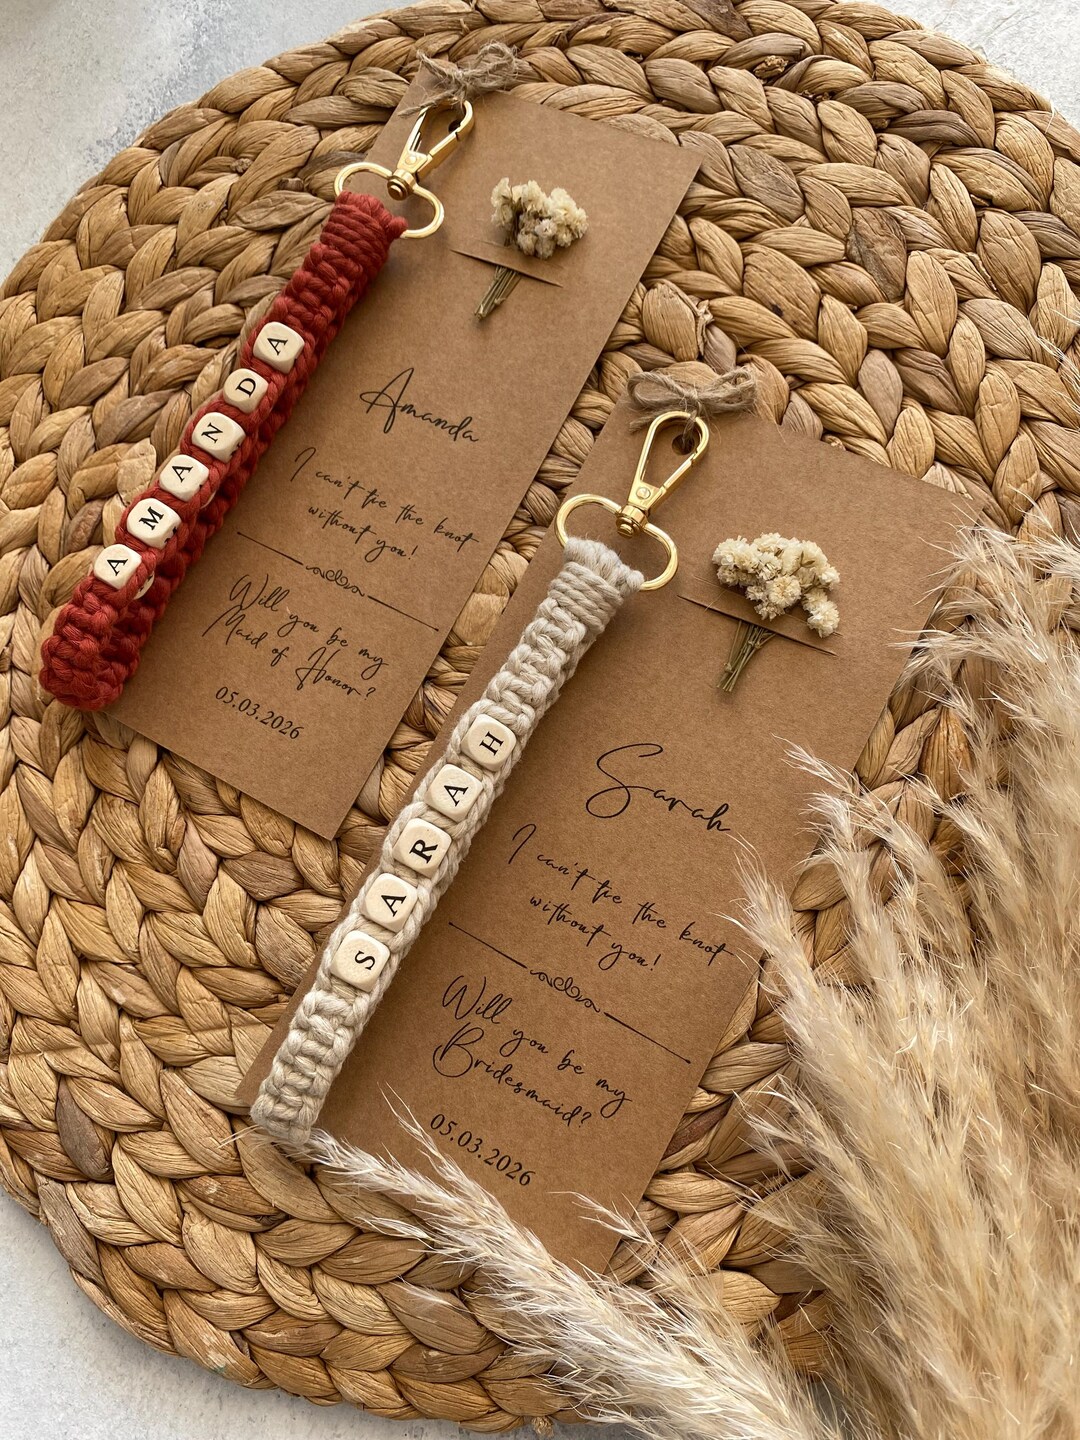 AMANDA
Amanda
I can't tie the knot
without you!
Will you be my
Maid of Honor?
05.03.2026
SARAH
Sarah
I can't tie the knot
without you!
Will you be my
Bridesmaid?
05.03.2026